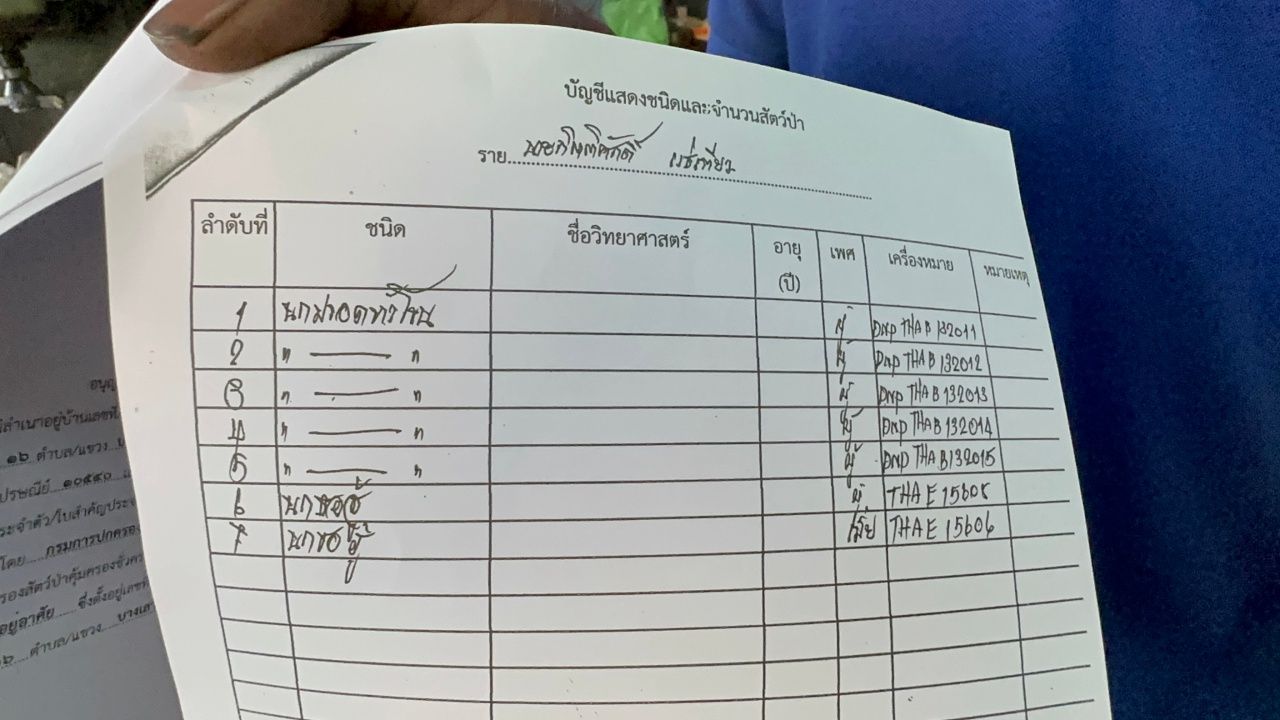 บัญชีแสดงชนิดและจำนวนสัตว์ป่า
ราย
ลำดับที่ ชนิด ชื่อวิทยาศาสตร์ อายุ (ปี) เพศ เครื่องหมาย หมายเหตุ
1 ผู้ DNP THA B 132011
2 " — " ผู้ DNP THA B 132012
3 " — " ผู้ DNP THA B 132013
4 " — " ผู้ DNP THA B 132014
5 " — " ผู้ DNP THA B 132015
6 ผู้ THA E
7 เมีย THA E 15606
อนุญ
สำเนาอยู่บ้านเลขที่
๑๖ ตำบล/แขวง
ปรษณีย์ ๑๐๕๔๐
ระจำตัว/ใบสำคัญประจ
โดย กรมการปกครอง
รองสัตว์ป่าคุ้มครองชั่วคร
อยู่อาศัย ซึ่งตั้งอยู่เลขที่
ตำบล/แขวง